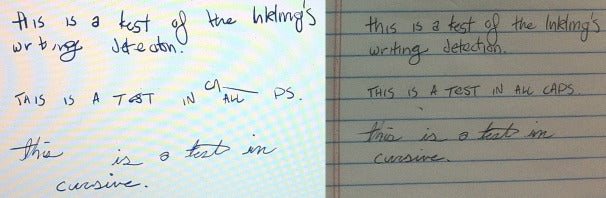 this is a test of the Inkling's
writing detection.
THIS IS A TEST IN ALL CAPS.
this is a test in
cursive.
this is a test of the Inkling's
writing detection.
THIS IS A TEST IN ALL CAPS.
this is a test in
cursive.